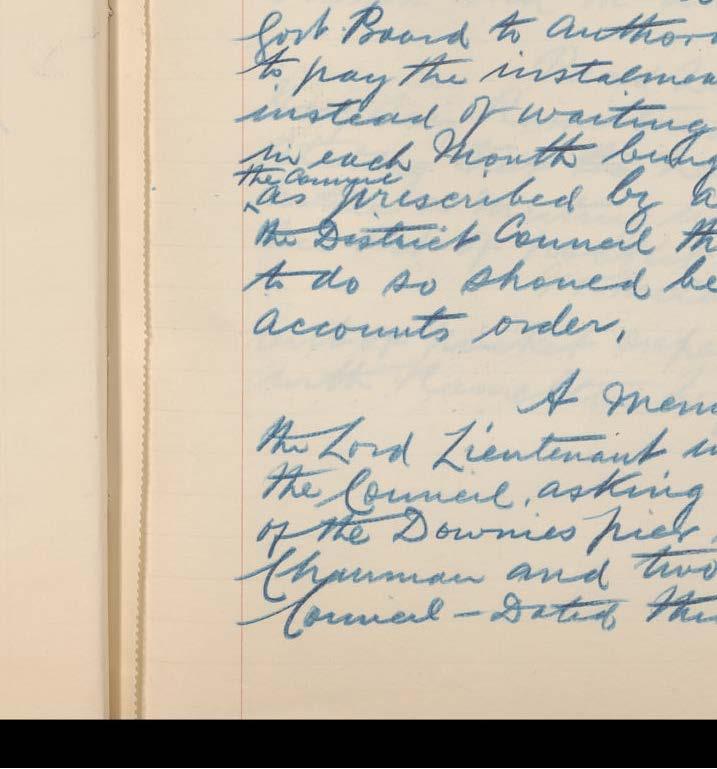 Govt Board to Author
to pay the instalmen
instead of waiting
in each Month being
the Council
as prescribed by a
the District Council th
to do so should be
accounts order,
A Mem
the Lord Lieutenant
the Council, asking
of the Downies pier
Chairman and two
Council - Dated this